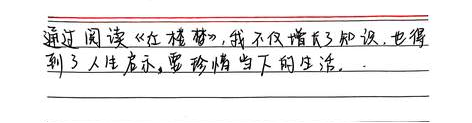 通过阅读《红楼梦》,我不仅增长了知识,也得
到了人生启示。要珍惜当下的生活。